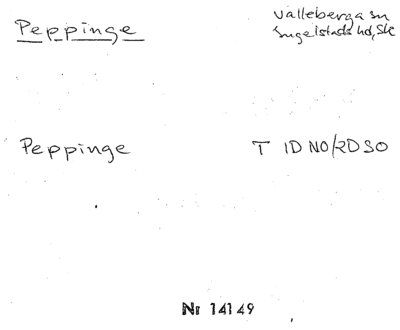 Peppinge
Valleberga sn
Ingelstads hd, Sk
Peppinge T 1D NO/2D SO
Nr 14149